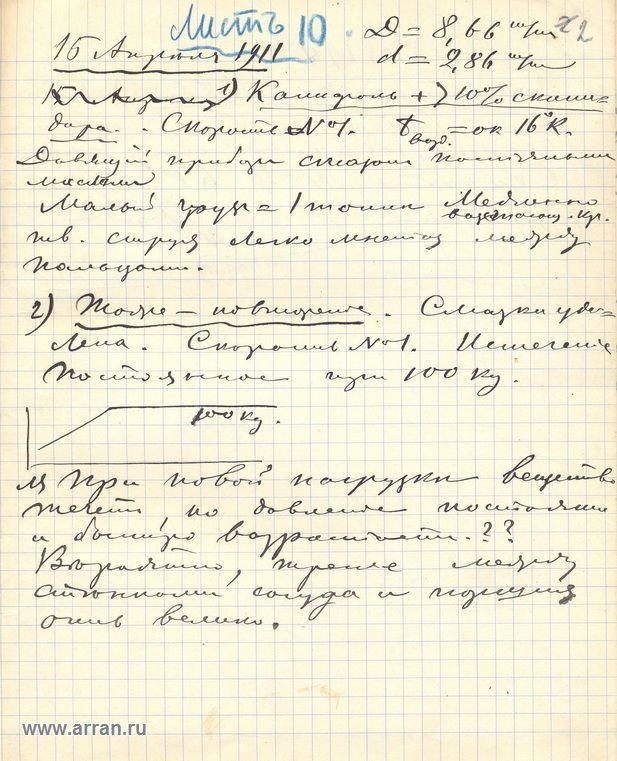 Листъ 10.
D = 8,66 m/m
х2
15 Апреля 1911
d = 2,86 m/m
1) Канифоль + 10% скипи=
дара. Скорость №1. t вод. = ок 16°К.
Давящий прибор смазан
маслом
Малый груз = 1 тонны Медленно
струя легко мнется между
пальцами.
2) Тоже – повторение. Смазка уда=
лена. Скорость №1. Истечение
постоянное при 100 кг.
100 кг.
При новой нагрузки вещество
течетъ, но давление постоянно
и быстро возрастаетъ.??
Вероятно, трение между
стенками сосуда и поршня
очень велико.
www.arran.ru